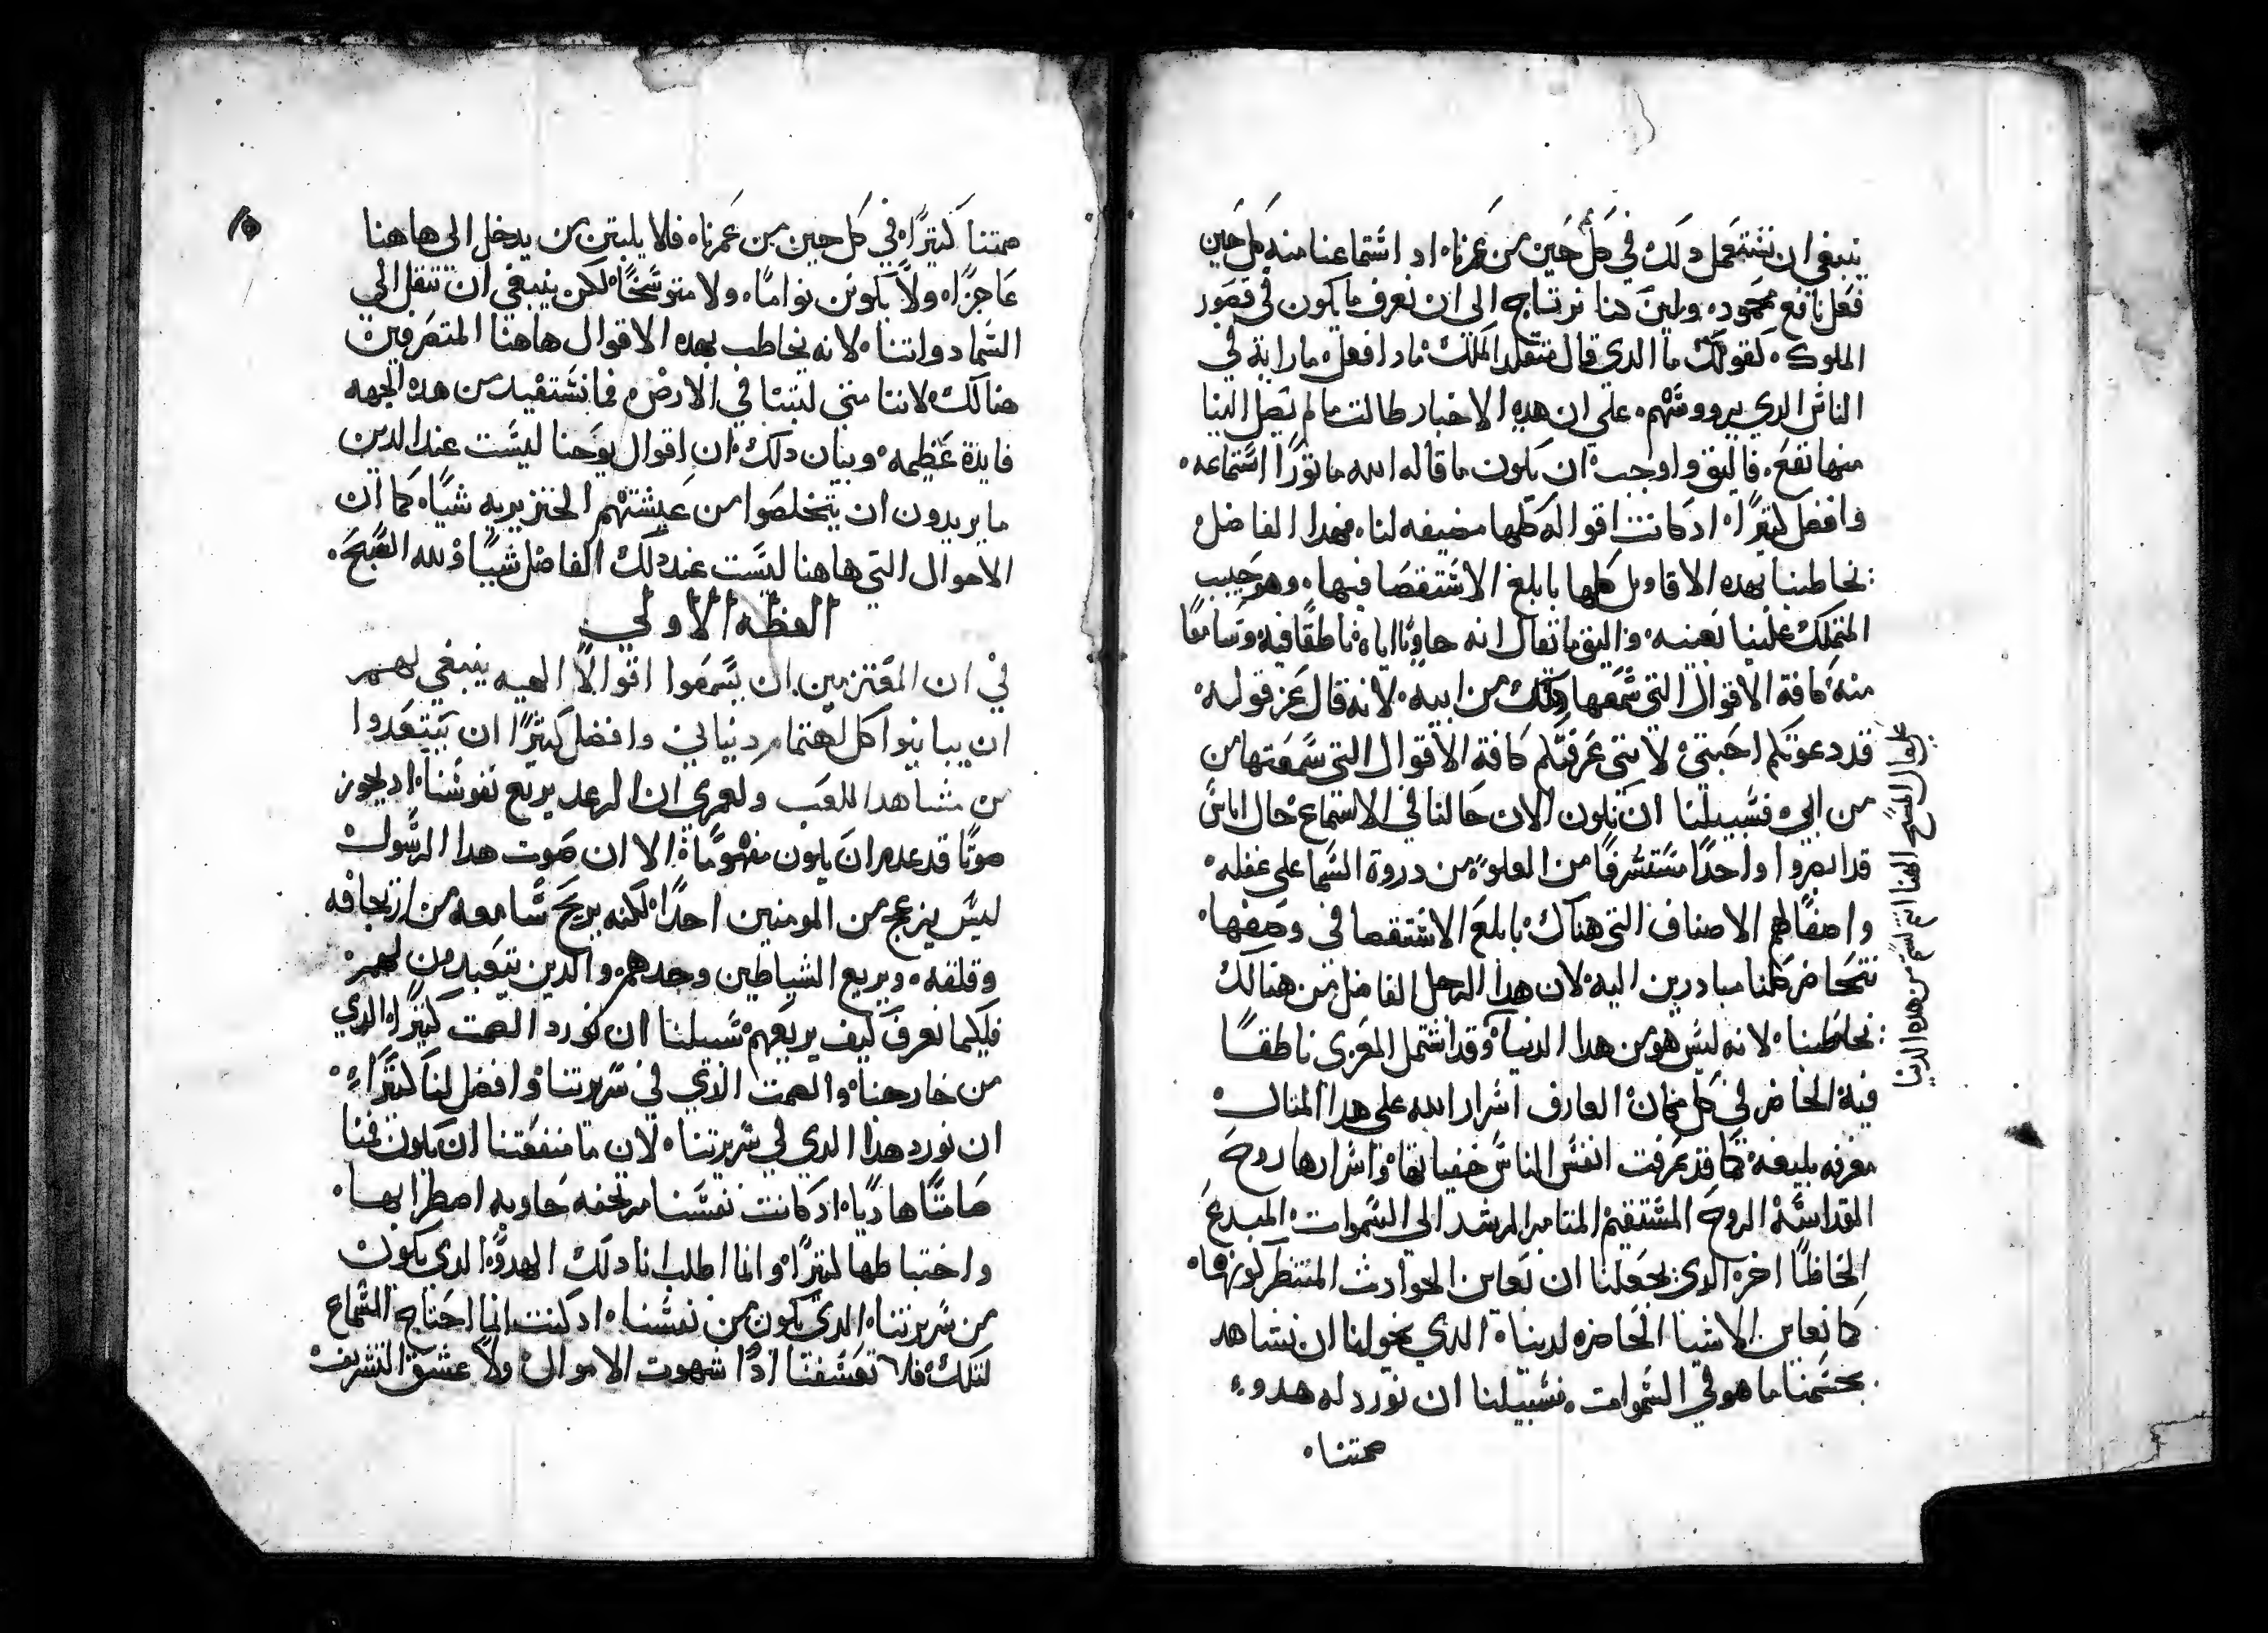 ينبغي ان نستعمل دلك في كل حين من عمرنا، اد استماعنا منه كل حين
فعل نافع محمود، ولين كنا نرتاح الى ان نعرف ما يكون في قصور
الملوك، كقولك ما الدي قال فتقلد الملك مادا فعل، ما رايه في
الناس الدي يرووسهم، على ان هده الاخبار طالت ما لم يصل الينا
منها نفع، فاليق واوجب ان يكون ما قاله الله ماتورًا استماعه،
وافضل كتيرًا، اد كانت اقواله كلها مضيفه لنا، فهدا الفاضل
يخاطبنا بهده الاقاويل كلها بابلغ الاستقصا فيها، وهو حبيب
المتملك علينا نعينه، واليق ما يقال انه حاويًا اياه ناطقًا فيه وسامعًا
منه كافة الاقوال التي سمعها دلك من ابيه، لانه قال عز قوله
قد دعوتكم احبتي، لانني عرفتكم كافة الاقوال التي سمعتها من
من ابي، فسبيلنا ان تكون الان حالنا في الاستماع حال اناس
قد ابصروا واحدًا مستشرفًا من العلو، من دروة السما على غفله
واصفًا لهم الاصناف التي هناك، بابلغ الاستقصا في وصفها،
نتحاضر كلنا مبادرين اليه، لان هدا الرجل الفاضل من هنالك
يخاطبنا، لانه ليس هو من هدا الدنيا، وقد اشتمل المعزى ناطقًا
فيه الحاضر في كل مكان، العارف اسرار الله على هدا المتال
معرفه بليغه، كما قد عرفت انفس الناس خفياتها، واسرارها روح
القداسه، الروح المستقيم، المتامر المرشد الى السموات، المبدع
الحاظًا اخر، الدي يجعلنا ان نعاين الحوادث المنتظر كونها،
كما نعاين الاشيا الحاضره لدينا، الدي يخولنا ان نشاهد
بجسمنا ما هو في السموات، فسبيلنا ان نورد له هدوء
صمتنا،
علي قول المسيح الهنا انتم لستم من هده الدنيا
صمتنا كتيرًا، في كل حين من عمرنا، فلا يلبتن من يدخل الى هاهنا
عاجزًا، ولا يكونن نوامًا، ولا متوسخًا، لكن ينبغي ان ننتقل الي
السما دواتنا، لانه يخاطب بهده الاقوال هاهنا المتصرفين
هنالك، لاننا متى لبتنا في الارض، فما نستفيد من هده الجهه
فايدة عظيمه، وبيان دلك، ان اقوال يوحنا ليست عند الدين
ما يريدون ان يتخلصوا من عيشتهم الخنزيريه شيًا، كما ان
الاحوال التي هاهنا ليست عند دلك الفاضل شيًا، ولله السبح،
العظه الاولي
في ان المعتزمين ان يسمعوا اقوالًا الهيه ينبغي لهم
ان يباينوا كل اهتمام دنياني وافضل كتيرًا ان يبتعدوا
من مشاهد اللعب ولعمري ان الرعد يريع نفوسنا، اد يحوز
صوتًا قد عدم ان يكون مفهومًا، الا ان صوت هدا الرسول
ليس يزعج من المومنين احدًا، لكنه يريح سامعه من ارتجافه
وقلقه، ويريع الشياطين وحدهم، والدين يتعبدون لهم،
فلكيما نعرف كيف يريعهم، سبيلنا ان نورد الصمت كتيرًا، الدي
من خارجنا، والصمت الدي في سريرتنا، وافضل لنا كتيرًا،
ان نورد هدا الدي في سريرتنا، لان ما منفعتنا ان يكون فمنا
صامتًا هاديًا، اد كانت نفسنا مرتجفه حاويه اضطرابها،
واختباطها كتيرًا، وانما اطلب انا دلك الهدو، الدي يكون
من سريرتنا، الدي يكون من نفسنا، اد كنت انما احتاج السماع
لتلك، فلا تعسفنا ادًا شهوت الاموال، ولا عشق التشريف